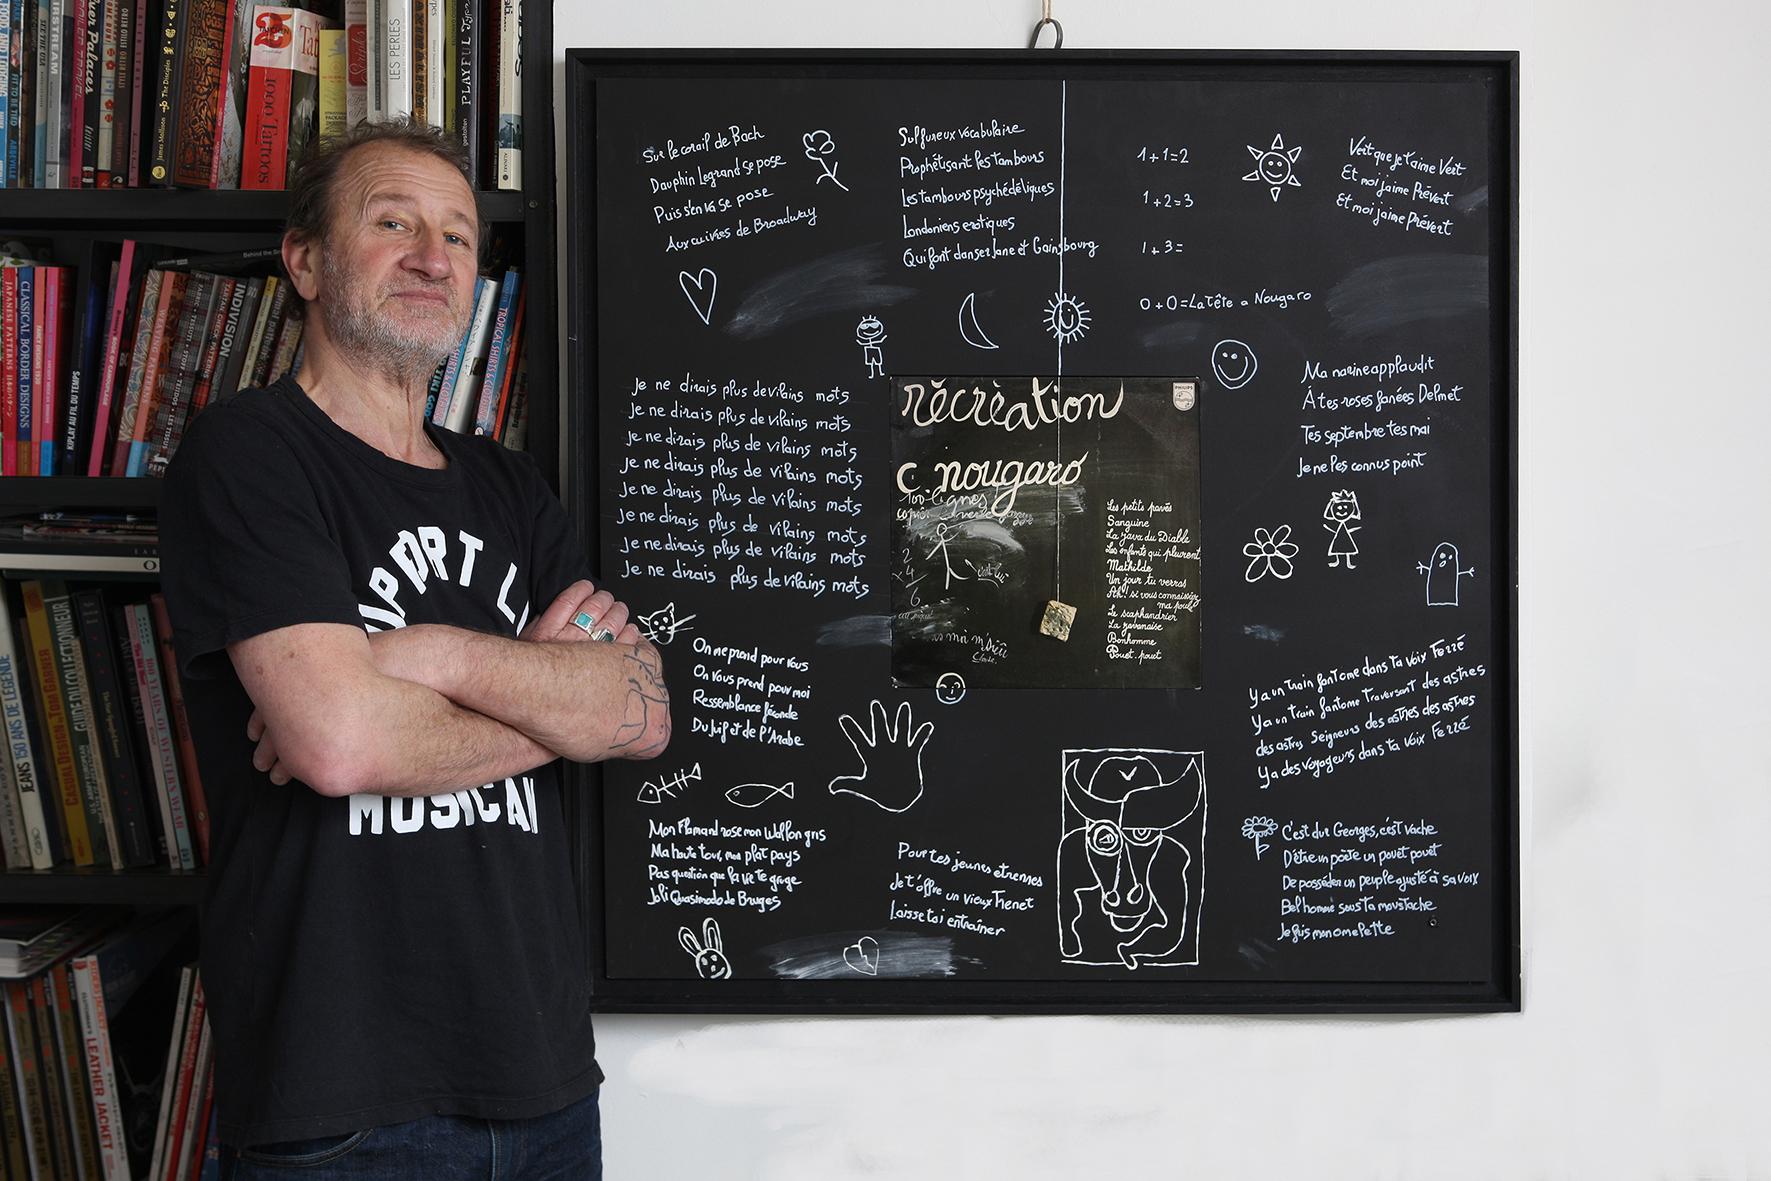 1000 Tattoos
James Mollison The Disciples
LES PERLES
PLAYFUL TYPE
gestalten
JAPANESE PATTERNS
CLASSICAL BORDER DESIGNS
FANCY DESIGNS 1920
KIPLAY AU FIL DU TEMPS
WEAVING PATTERNS
TARTAN CHECK PATTERNS
INDIVISION
Behind the
TROPICAL SHIRTS &
TIKI GOD
JEANS 150 ANS DE LÉGENDE
CASUAL DESIGN by TODA GARNER
GUIDE DU COLLECTIONNEUR
100 YEARS OF WESTERN WEAR
LEATHER JACKET
UPPORT LI
MUSICIAN
Sur le corail de Bach
Dauphin Legrand se pose
Puis s'en va se pose
Aux cuivres de Broadway
Sulfureux vocabulaire
Prophétisant les tambours
Les tambours psychédéliques
Londoniens erotiques
Qui font danser Jane et Gainsbourg
1+1=2
1+2=3
1+3=
0+0=La tête a Nougaro
Vert que je t'aime Vert
Et moi j'aime Prévert
Et moi j'aime Prévert
Ma narine applaudit
À tes roses fanées Delmet
Tes septembre tes mai
Je ne les connus point
Je ne dirais plus de vilains mots
Je ne dirais plus de vilains mots
Je ne dirais plus de vilains mots
Je ne dirais plus de vilains mots
Je ne dirais plus de vilains mots
Je ne dirais plus de vilains mots
Je ne dirais plus de vilains mots
Je ne dirais plus de vilains mots
récréation
PHILIPS
c nougaro
100 lignes
2
x 4
6
Les petits pavés
Sanguine
La java du Diable
Les enfants qui pleurent
Mathilde
Un jour tu verras
Ah! si vous connaissiez
ma poule
Le scaphandrier
La javanaise
Bonhomme
Pouet-pouet
moi m'sieu
Claude
On me prend pour vous
On vous prend pour moi
Ressemblance féconde
Du juif et de l'Arabe
Mon Flamand rose mon Wallon gris
Ma haute tour, mon plat pays
Pas question que la vie te gruge
Joli Quasimodo de Bruges
Pour tes jeunes etrennes
Je t'offre un vieux Trenet
Laisse toi entraîner
Y a un train fantome dans ta voix Ferré
Y a un train fantome traversant des astres
des astres Seigneurs des astres des astres
Y a des voyageurs dans ta voix Ferré
C'est dur Georges, c'est vache
D'être un poète un pouët pouët
De posséder un peuple ajusté à sa voix
Bel homme sous ta moustache
Je fais mon omelette